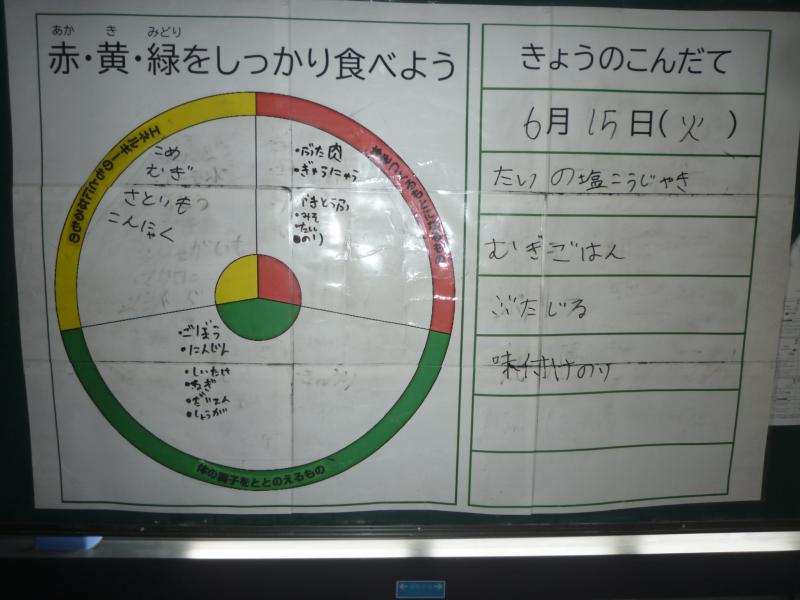 あか き みどり
赤・黄・緑をしっかり食べよう
エネルギーのもとになるもの
こめ
むぎ
さといも
こんにゃく
・ぶた肉
・ぎゅうにゅう
・みそ
・たい
・のり
・ごぼう
・にんじん
・しいたけ
・ねぎ
・だいこん
・しょうが
体の調子をととのえるもの
きょうのこんだて
6月 15日(火)
たいの塩こうじやき
むぎごはん
ぶたじる
味付けのり